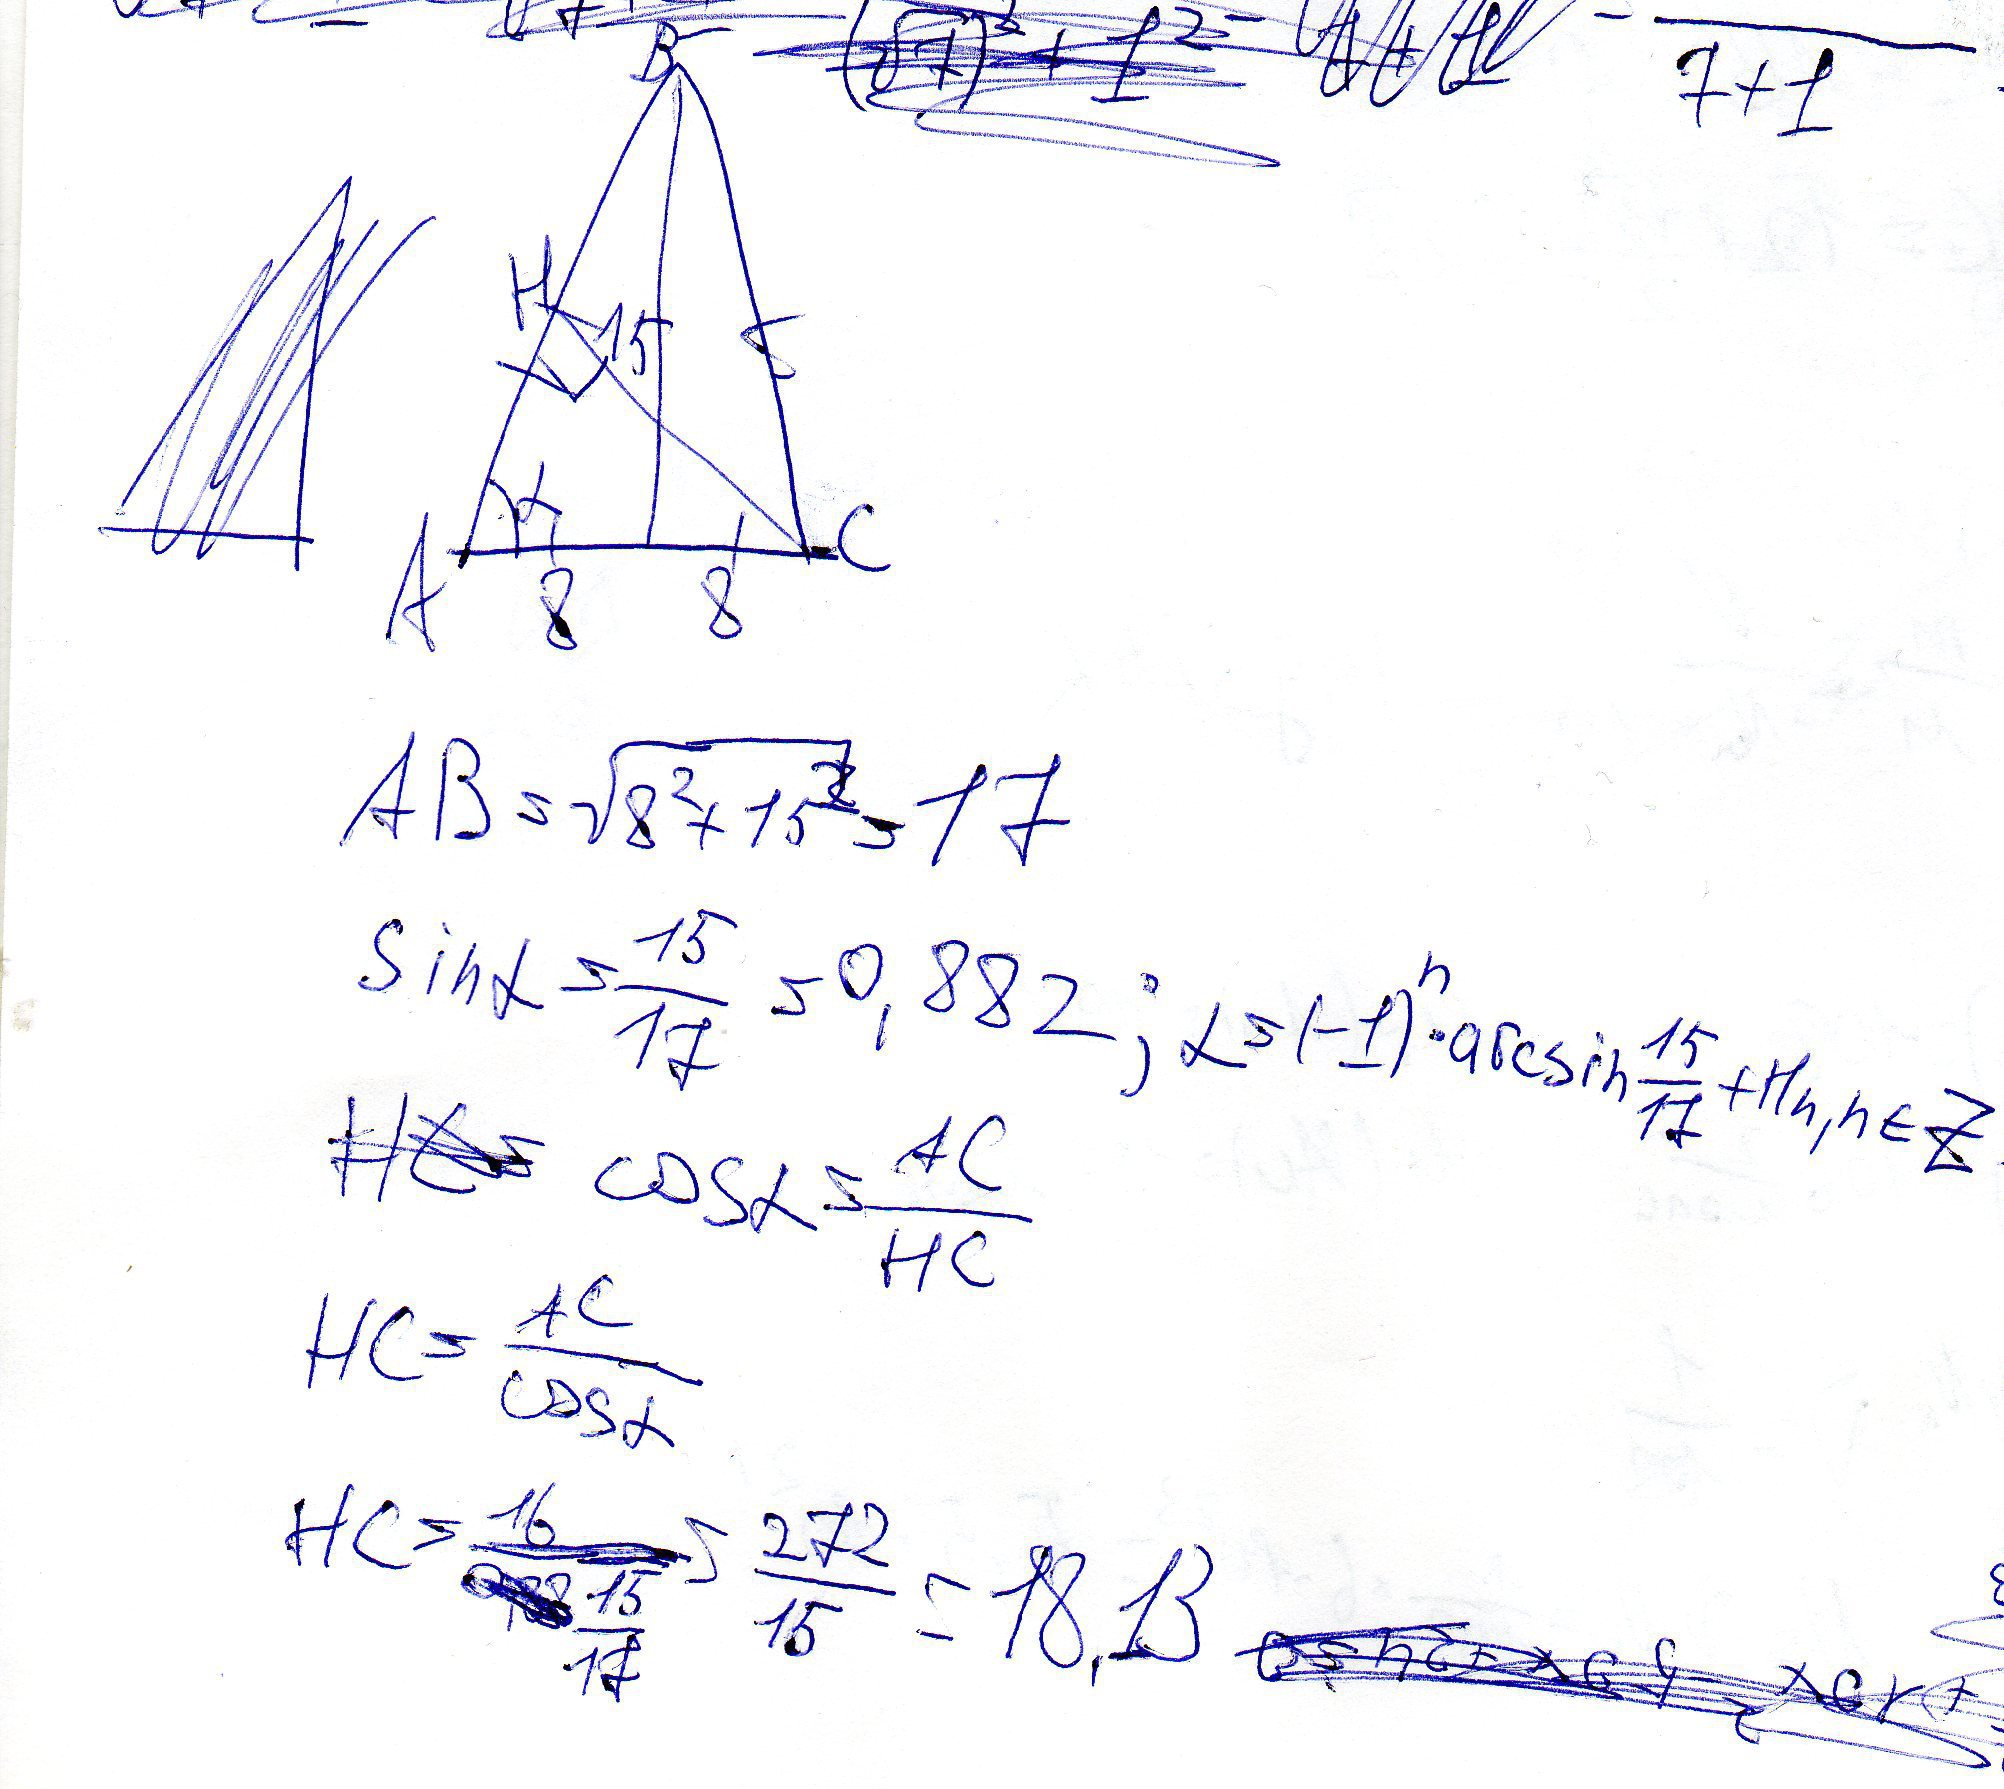 7+1
B
H 15
α
A 8 8 C
AB = √8²+15² = 17
sinα = 15/17 = 0,882 ; α = (-1)ⁿ·arcsin 15/17 + πn, n ∈ Z
cosα = AC/HC
HC = AC/cosα
HC = 16/(15/17) = 272/15 = 18,13